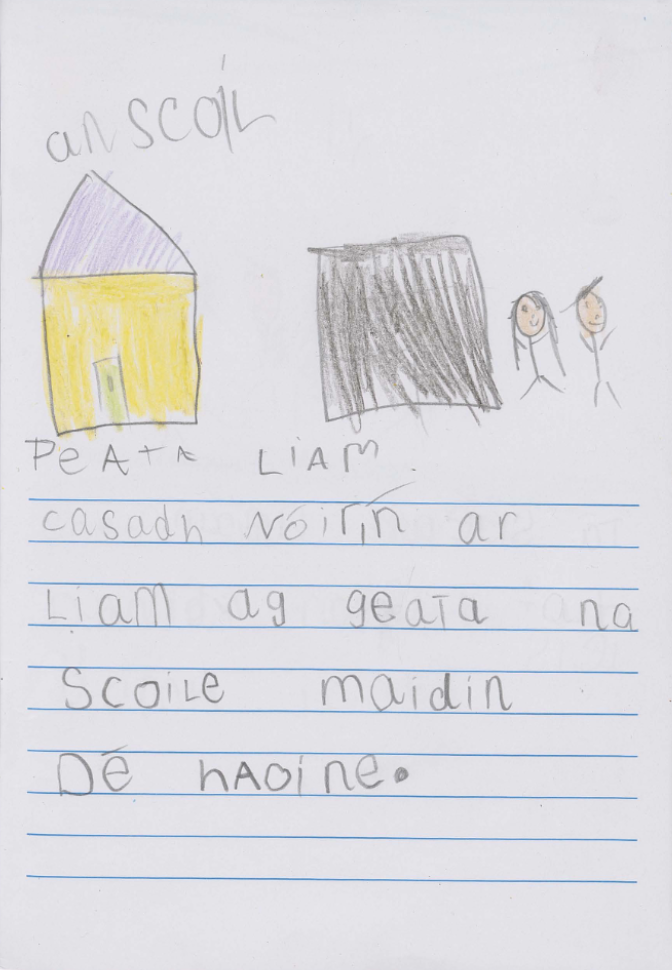 an scoil
PeATA LiAM.
casadh Nóirín ar
LiAM ag geaTa na
Scoile maidin
Dé hAoine.